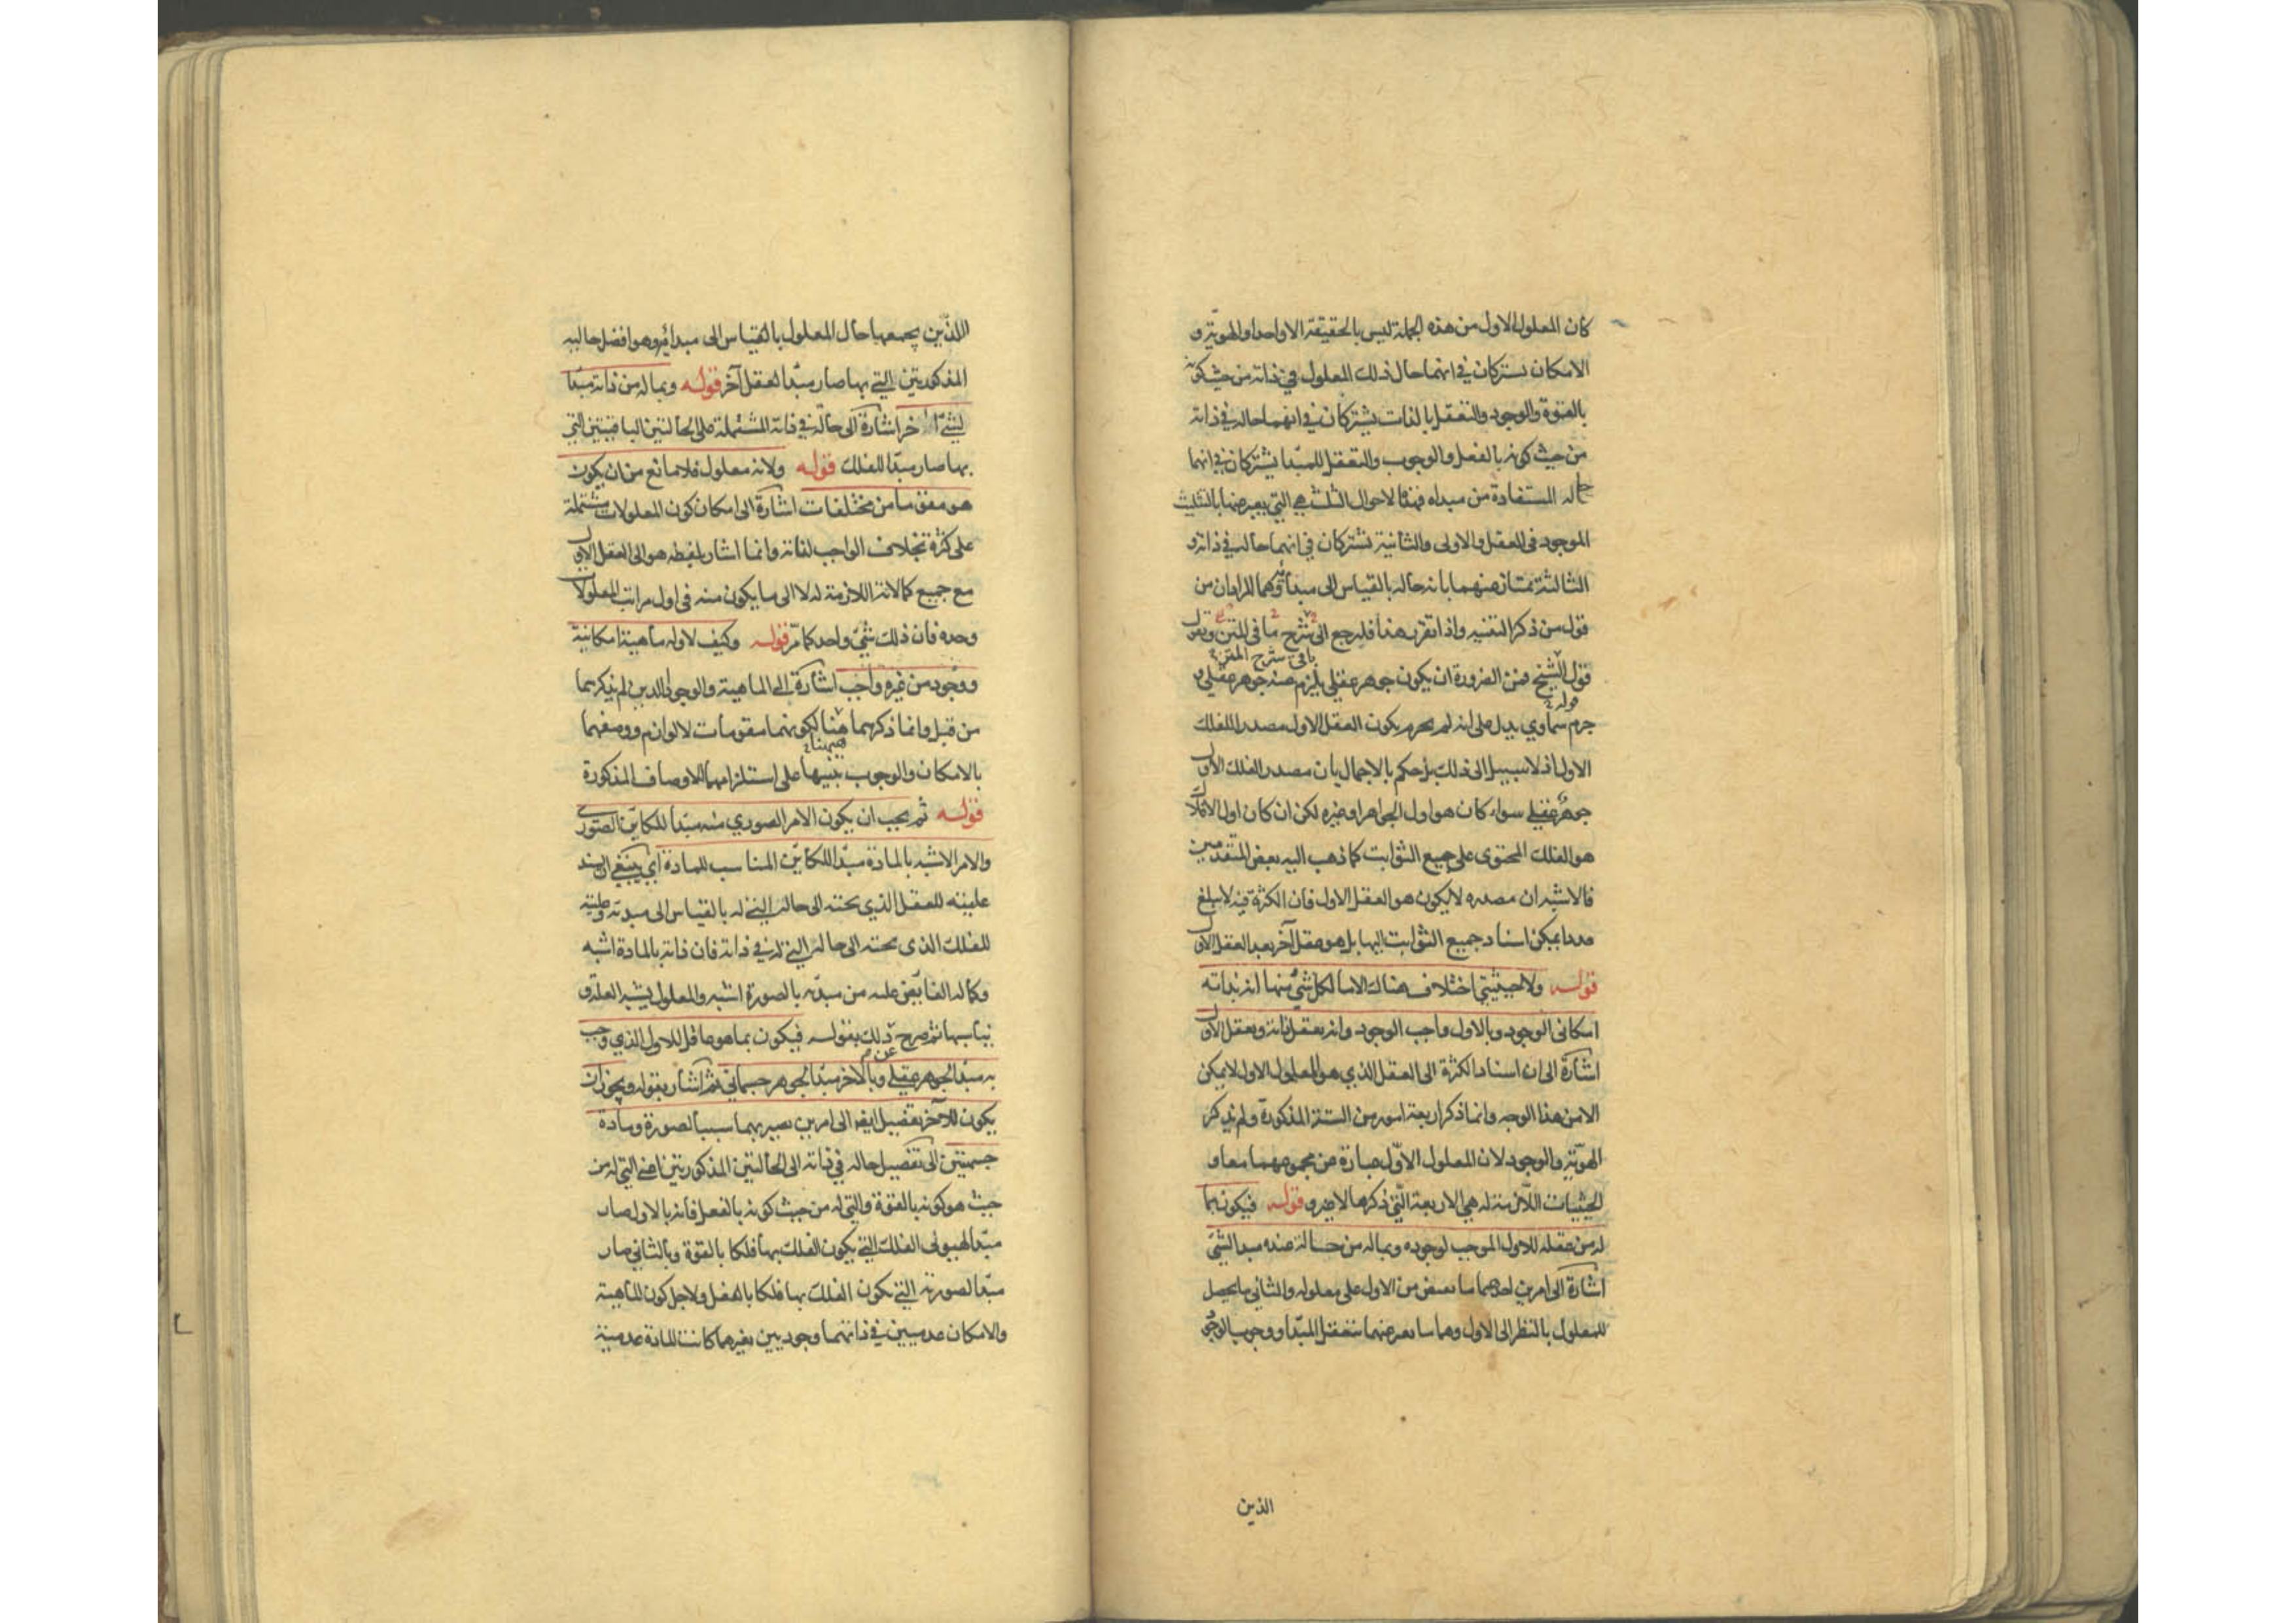 كان المعلول الاول من هذه الجملة ليس بالحقيقة الا واحدا والهوية و
الامكان تشتركان في انهما حال ذلك المعلول في ذاته من حيث كونه
بالقوة والوجود والتعقل بالذات يشتركان في انهما حاله في ذاته
من حيث كونه بالفعل والوجوب والتعقل للمبدا يشتركان في انهما
حاله المستفادة من مبداه فهذه الاحوال الثلث هي التي يعبر عنها بالتثليث
الموجود في العقل والاولى والثانية تشتركان في انهما حاله في ذاته و
الثالثة تمتاز عنهما بانه حاله بالقياس الى مبدأئه وهما المرادان من
قول من ذكر التثنيه واذا تقرر هذا فلنرجع الى شرح ما في المتن ونقول
باقي شرح المتن
قول الشيخ فمن الضرورة ان يكون جوهر عقلي يلزم عنه جوهر عقلي و
قوله
جرم سماوي يدل على انه لم يجزم بكون العقل الاول مصدرا للفلك
الاول اذ لا سبيل الى ذلك بل حكم بالاجمال بان مصدر الفلك الاول
جوهر عقلي سواء كان هو اول الجواهر او غيره لكن ان كان اول الافلاك
هو الفلك المحتوى على جميع الثوابت كما ذهب اليه بعض المتقدمين
فالاشبه ان مصدره لا يكون هو العقل الاول فان الكثرة فيه لا تبلغ
عددا يمكن اسناد جميع الثوابت اليها بل هو عقل آخر بعد العقل الاول
قوله ولا حيثيتي اختلاف هناك الا ما لكل شيء منها انه بذاته
امكاني الوجود وبالاول واجب الوجود وانه يعقل ذاته ويعقل الاول
اشارة الى ان اسناد الكثرة الى العقل الذي هو المعلول الاول لا يمكن
الا من هذا الوجه وانما ذكر اربعة امور من الستة المذكورة ولم يذكر
الهوية والوجود لان المعلول الاول عبارة عن مجموعهما معا و
الحيثيات اللازمة له هي الاربعة التي ذكرها لا غير و قوله فيكون بما
له من عقله للاول الموجب لوجوده وبما له من حاله عنده مبدا لشيء
اشارة الى امرين احدهما ما يفيض من الاول على معلوله والثاني ما يحصل
للمعلول بالنظر الى الاول وهما ما يعبر عنهما بتعقل المبدا ووجوب الوجود
الذين
اللذين يجمعهما حال المعلول بالقياس الى مبدائه وهو افضل حاليه
المذكورتين التي بها صار مبدا لعقل آخر قوله وبما له من ذاته مبدأ
لشيء آخر اشارة الى حاله في ذاته المشتملة على الحالتين الباقيتين التي
بها صار مبدا للفلك قوله ولانه معلول فلا مانع من ان يكون
هو مقوما من مختلفات اشارة الى امكان كون المعلولات مشتملة
على كثرة بخلاف الواجب لذاته وانما اشار بلفظه هو الى العقل الاول
مع جميع كمالاته اللازمة له لا الى ما يكون منه في اول مراتب المعلولات
وحده فان ذلك شيء واحد كما مر قوله وكيف لا وله ماهية امكانية
ووجود من غيره واجب اشارة الى الماهية والوجود الذين لم يذكرهما
من قبل وانما ذكرهما هنا لكونهما مقومات لا لوازم ووصفهما
بالامكان والوجوب تنبيها على استلزامهما الاوصاف المذكورة
قوله ثم يجب ان يكون الامر الصوري منه مبدأ للكاين الصوري
والامر الاشبه بالمادة مبدا للكاين المناسب للمادة اي ينبغي ان يسند
عليته للعقل الذي تحته الى حاله التي له بالقياس الى مبدئه وعليته
للفلك الذي تحته الى حاله التي له في ذاته فان ذاته بالمادة اشبه
وكماله الفايض عليه من مبدئه بالصورة اشبه والمعلول يشبه العلة و
يناسبها ثم صرح ذلك بقوله فيكون بما هو عاقل للاول الذي وجب
به مبدأ لجوهر عقلي وبالآخر مبدأ لجوهر جسماني ثم اشار بقوله ويجوز ان
يكون للآخر تفصيل ايضا الى امرين يصير بهما سببا لصورة ومادة
جسميتين الى تفصيل حاله في ذاته الى الحالتين المذكورتين اعني التي له من
حيث هو كونه بالقوة والتي له من حيث كونه بالفعل فانه بالاول صار
مبدأ لهيولى الفلك التي يكون الفلك بها فلكا بالقوة وبالثاني صار
مبدأ لصورته التي يكون الفلك بها فلكا بالفعل ولاجل كون الماهية
والامكان عدميين في ذاتهما وجوديين بغيرهما كانت المادة عدمية